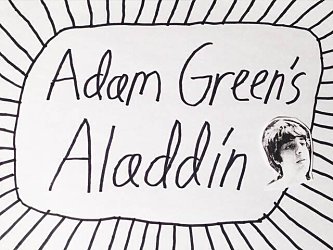 Adam Green's
Aladdin